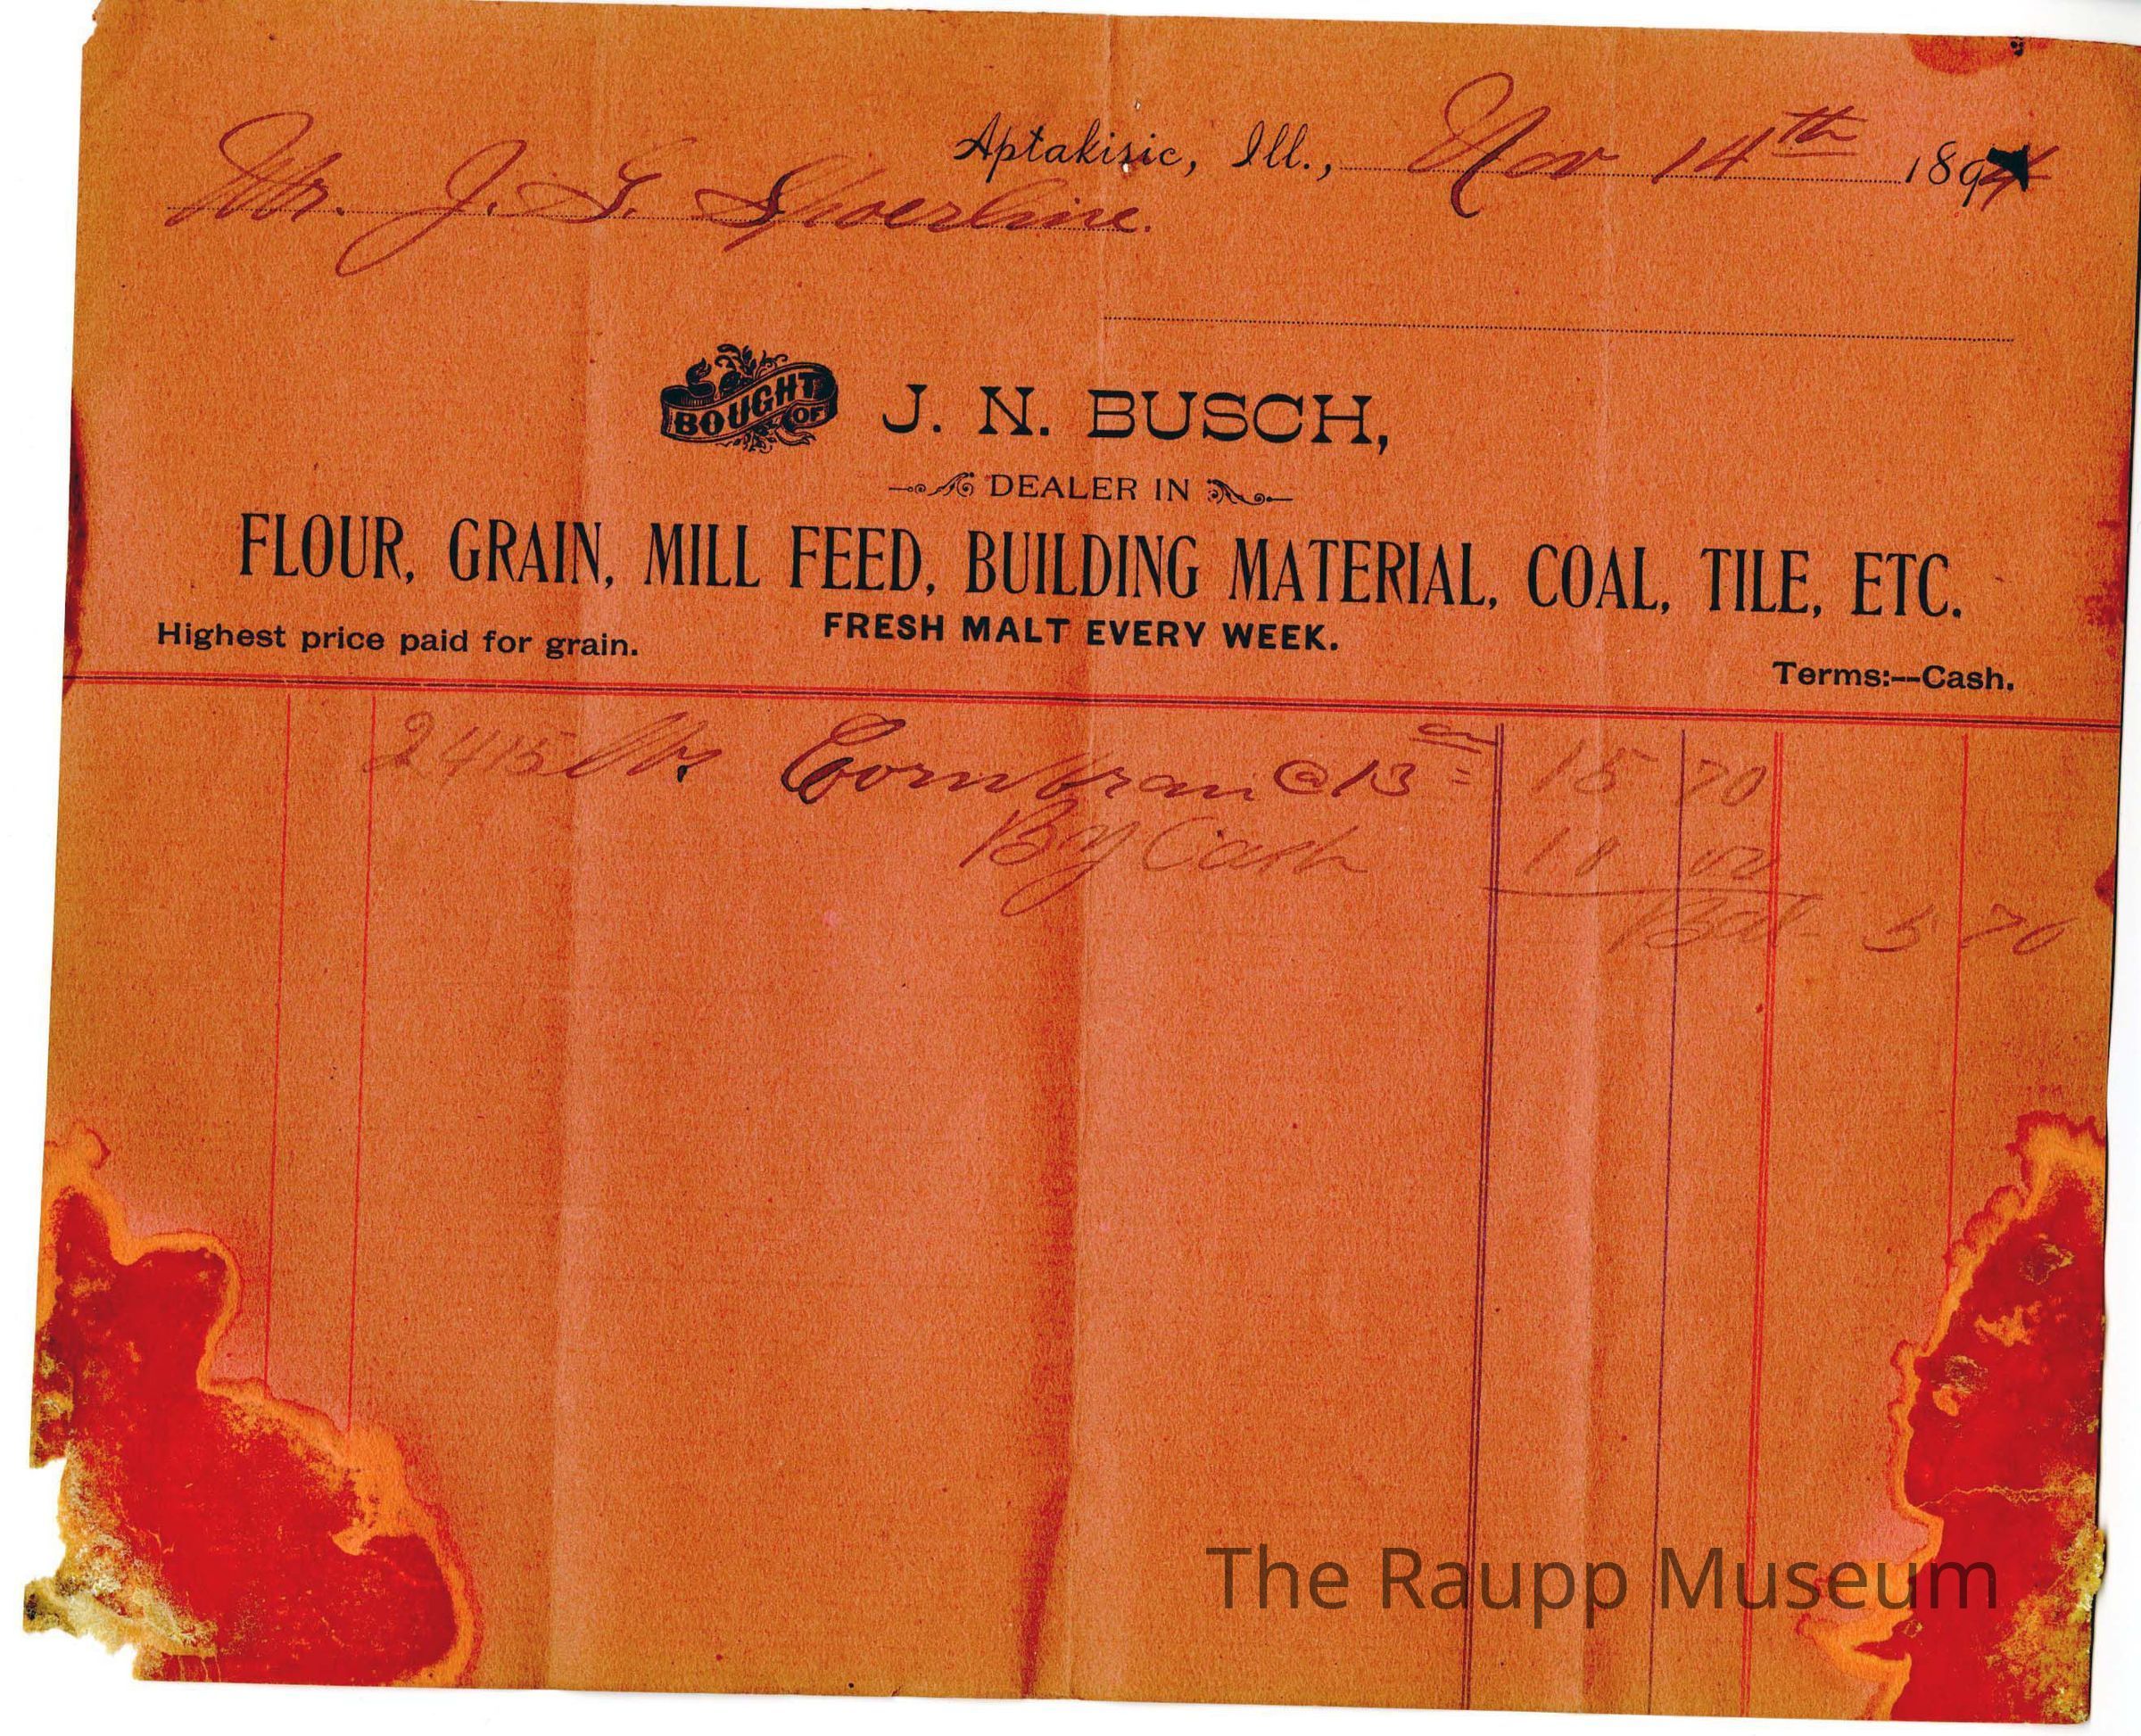 Aptakisic, Ill., Nov 14th 1894
Mr. J. G.
BOUGHT OF J. N. BUSCH,
DEALER IN
FLOUR, GRAIN, MILL FEED, BUILDING MATERIAL, COAL, TILE, ETC.
Highest price paid for grain. FRESH MALT EVERY WEEK. Terms:--Cash.
2415 lbs Cornbran @ 13 15 70
By Cash 10 00
Bal. 5 70
The Raupp Museum